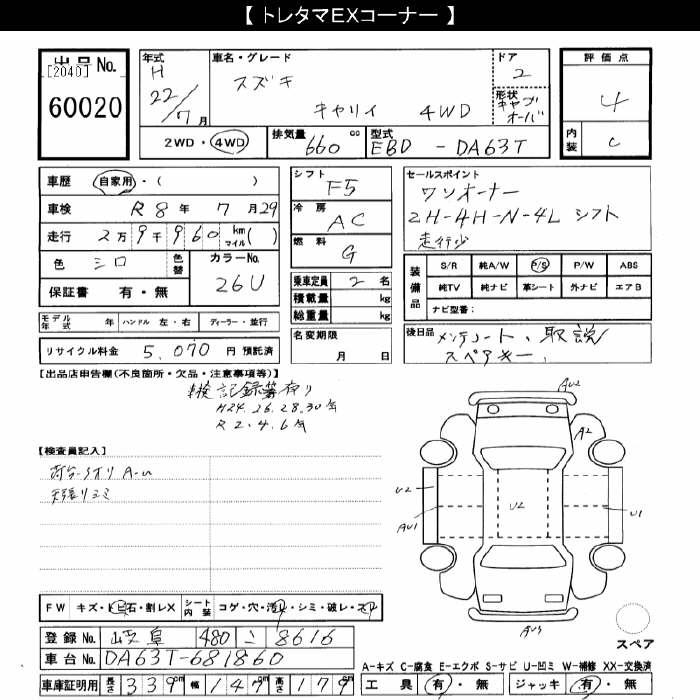 【 トレタマEXコーナー 】
出品No.
[2040]
60020
年式
H
22/7月
車名・グレード
スズキ
キャリイ 4WD
ドア
2
形状
キャブオーバ
評価点
4
内装
C
2WD・4WD
排気量
660 cc
型式
EBD - DA63T
車歴 自家用・( )
車検 R8年 7月29
走行 2万9千960 km マイル( )
色 シロ 色替 カラーNo. 26U
保証書 有・無
モデル年式 年 ハンドル 左・右 ディーラー・並行
リサイクル料金 5,070 円預託済
シフト
F5
冷房
AC
燃料
G
乗車定員 2 名
積載量 kg
総重量 kg
名変期限
月 日
セールスポイント
ワンオーナー
2H-4H-N-4L シフト
走行少
装備品
S/R 純A/W P/S P/W ABS
純TV 純ナビ 革シート 外ナビ エアB
ナビ型番:
後日品 メンテノート、取説
スペアキー、
【出品店申告欄(不良箇所・欠品・注意事項等)】
車検記録簿有り
H24.26.28.30年
R2.4.6年
【検査員記入】
荷台ノオリ A-U
天張リシミ
AU2
A2
U2
AU1
U2
U1
AU3
スペア
FW キズ・トビ石・割レX シート内装 コゲ・穴・汚レ・シミ・破レ・スレ
登録No. 岐阜 480 こ 8616
車台No. DA63T-681860
車庫証明用 長さ 339cm 幅 147cm 高さ 179cm
A-キズ C-腐食 E-エクボ S-サビ U-凹ミ W-補修 XX-交換済
工具 有・無 ジャッキ 有・無